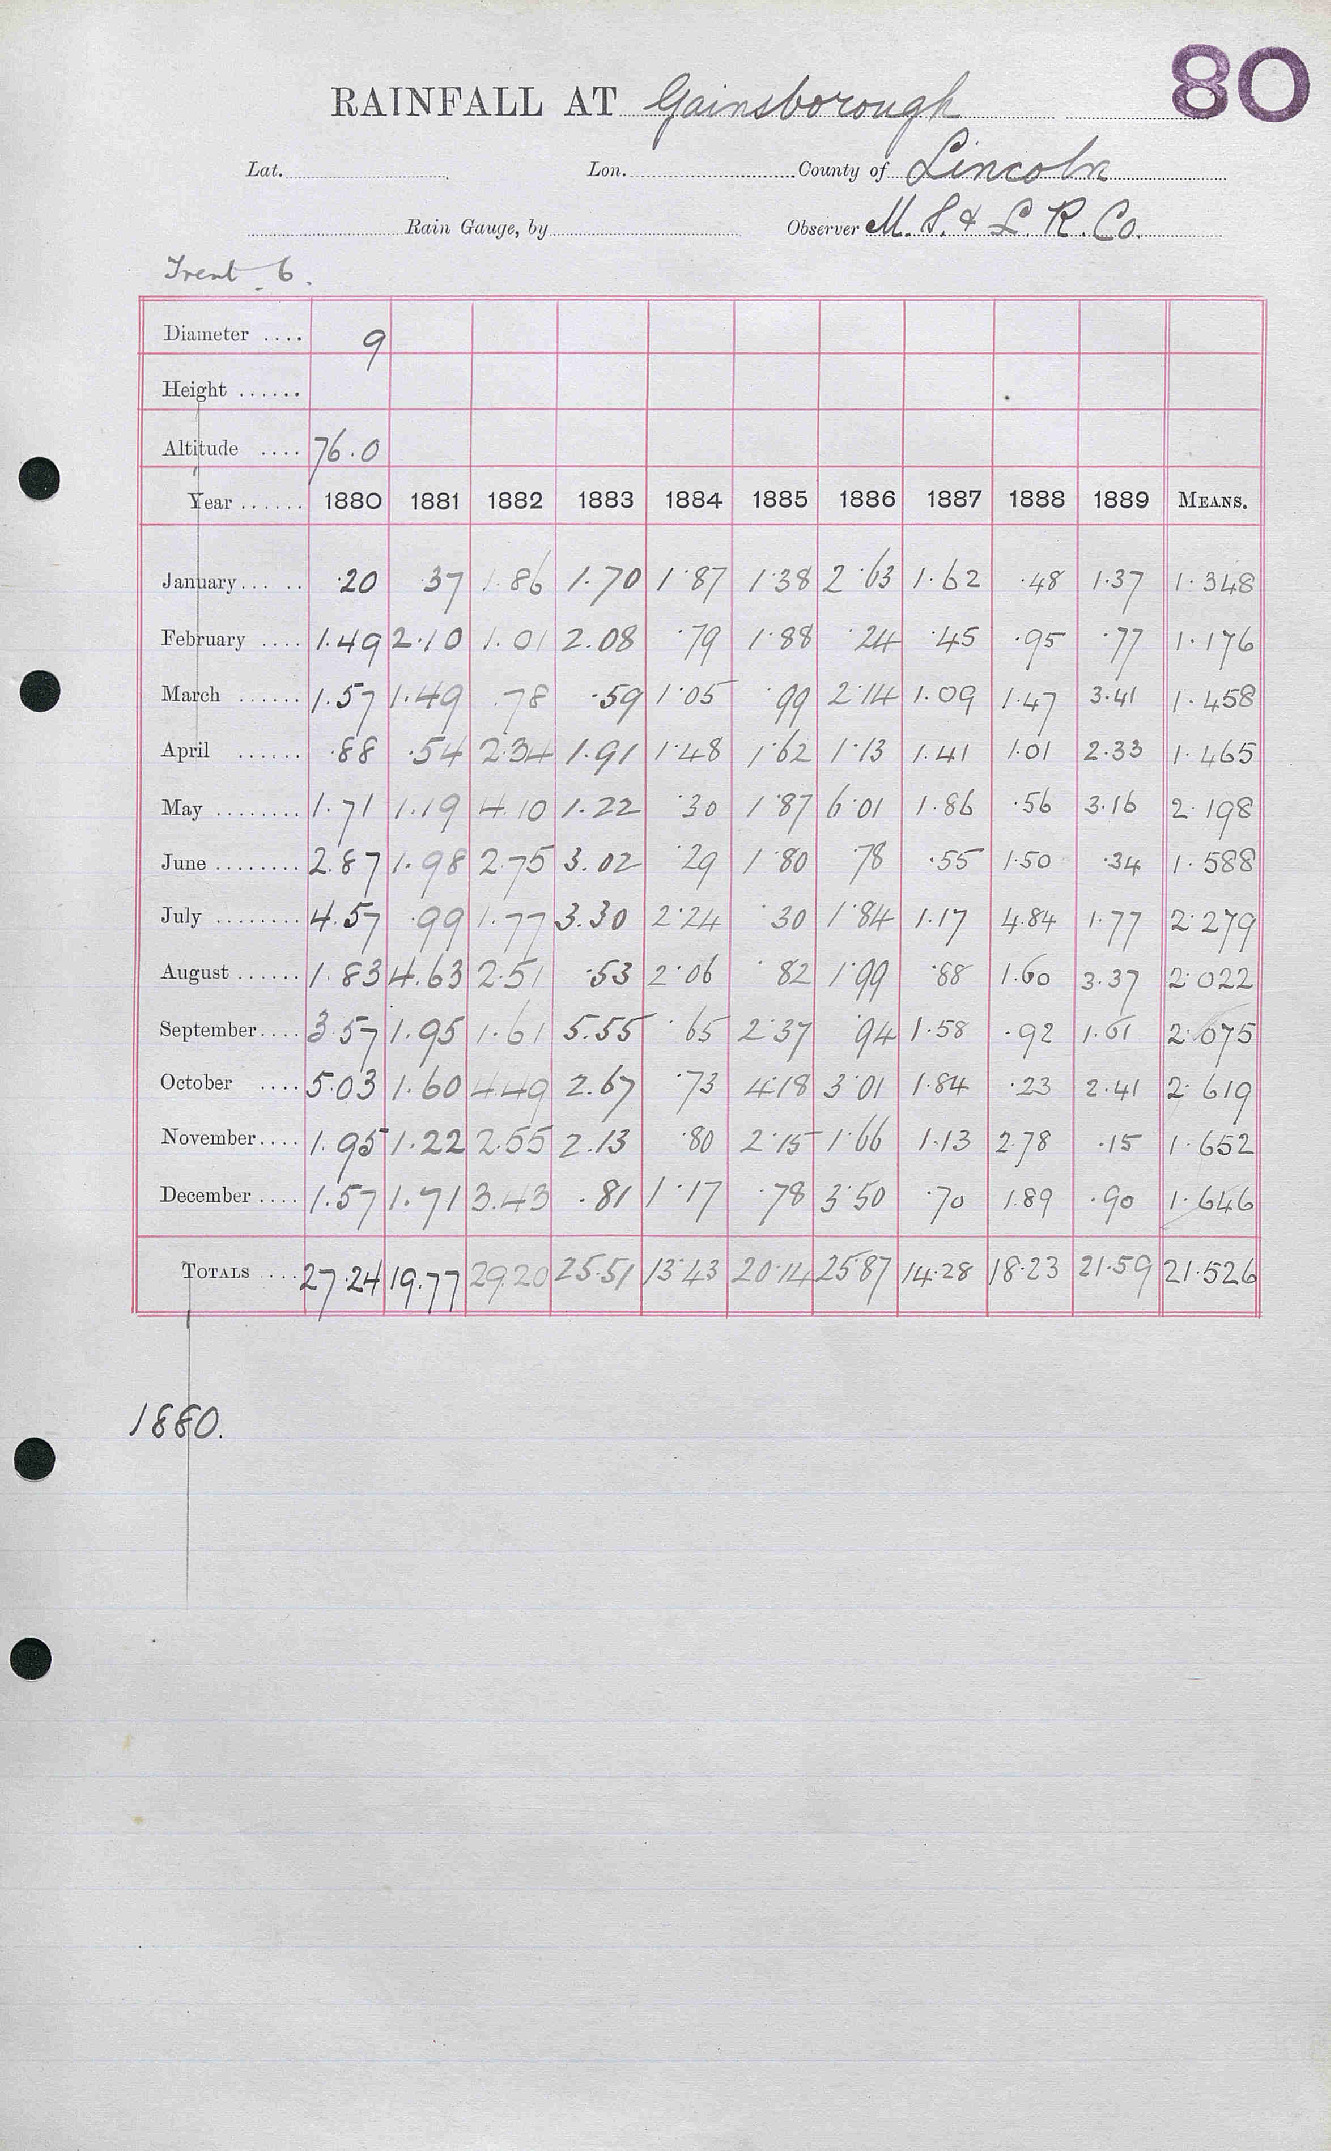 80
RAINFALL AT Gainsborough
Lat. Lon. County of Lincoln
Rain Gauge, by Observer M. S. & L. R. Co.
Trent 6.
Diameter .... 9
Height ......
Altitude .... 76.0
Year ...... 1880 1881 1882 1883 1884 1885 1886 1887 1888 1889 MEANS.
January ...... .20 .37 1.86 1.70 1.87 1.38 2.63 1.62 .48 1.37 1.348
February .... 1.49 2.10 1.01 2.08 .79 1.88 .24 .45 .95 .77 1.176
March ...... 1.57 1.49 .78 .59 1.05 .99 2.14 1.09 1.47 3.41 1.458
April ...... .88 .54 2.34 1.91 1.48 1.62 1.13 1.41 1.01 2.33 1.465
May ........ 1.71 1.19 4.10 1.22 .30 1.87 6.01 1.86 .56 3.16 2.198
June ........ 2.87 1.98 2.75 3.02 .29 1.80 .78 .55 1.50 .34 1.588
July ........ 4.57 .99 1.77 3.30 2.24 .30 1.84 1.17 4.84 1.77 2.279
August ...... 1.83 4.63 2.51 .53 2.06 .82 1.99 .88 1.60 3.37 2.022
September .... 3.57 1.95 1.61 5.55 .65 2.37 .94 1.58 .92 1.61 2.075
October .... 5.03 1.60 4.49 2.67 .73 4.18 3.01 1.84 .23 2.41 2.619
November .... 1.95 1.22 2.55 2.13 .80 2.15 1.66 1.13 2.78 .15 1.652
December .... 1.57 1.71 3.43 .81 1.17 .78 3.50 .70 1.89 .90 1.646
TOTALS ... 27.24 19.77 29.20 25.51 13.43 20.14 25.87 14.28 18.23 21.59 21.526
1880.